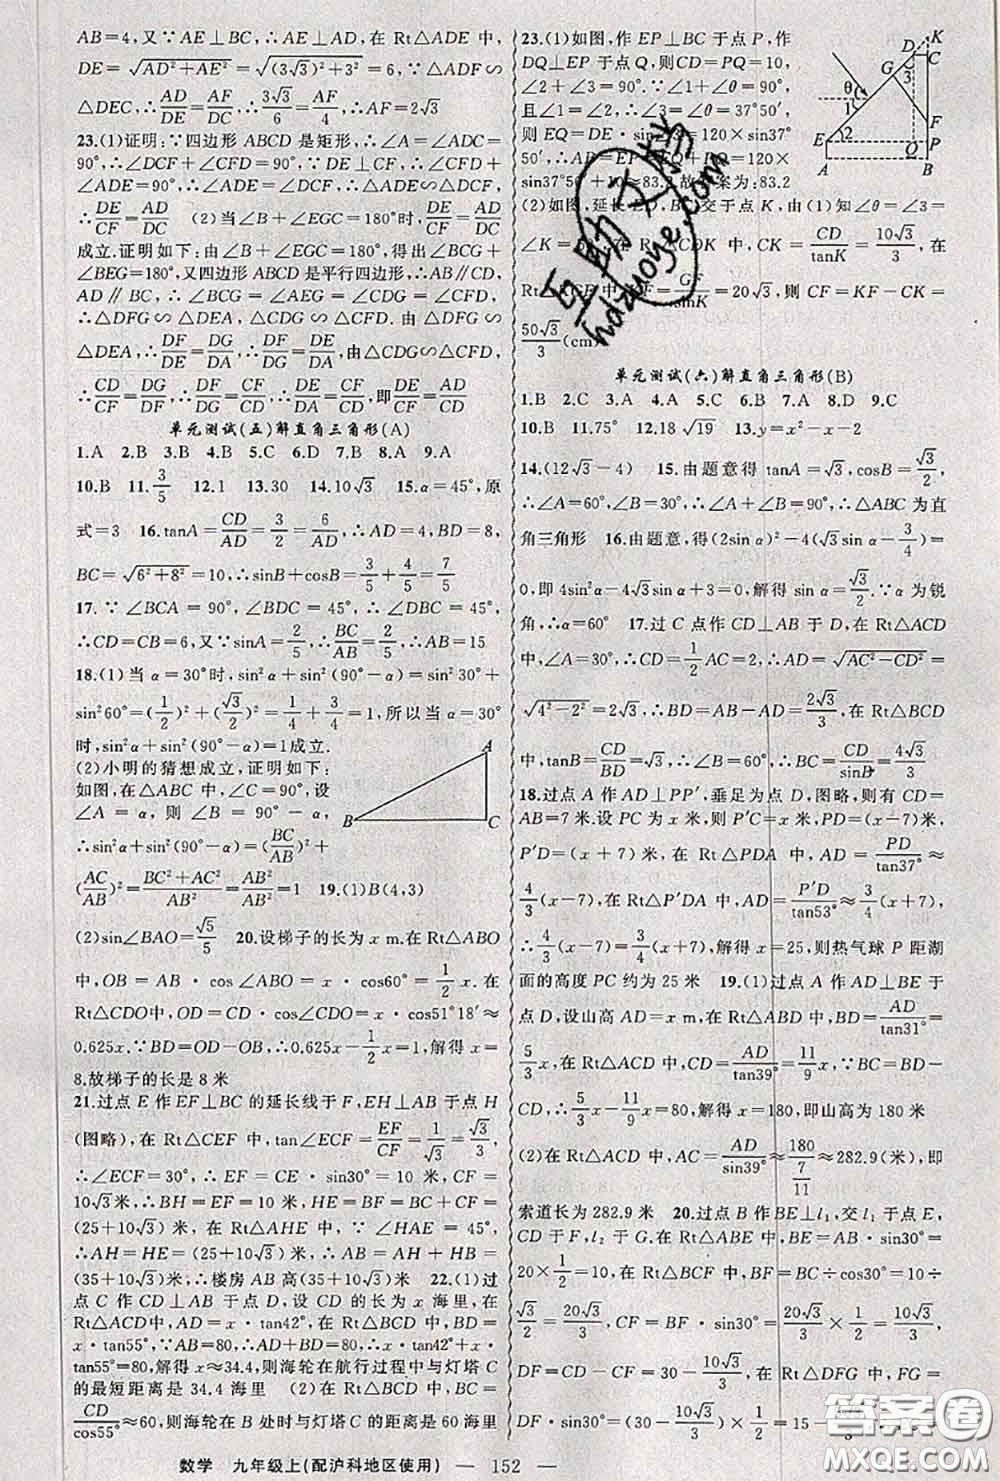 AB=4,又∵AE⊥BC,∴AE⊥AD,在 Rt△ADE 中,
DE=√(AD²+AE²)=√((3√3)²+3²)=6,∵△ADF∽
△DEC,∴AD/DE=AF/DC,∴3√3/6=AF/4,∴AF=2√3
23.(1)证明:∵四边形 ABCD 是矩形,∴∠A=∠ADC=
90°,∴∠ADE+∠CDE=90°.∵DE⊥CF,∴∠CDE+
∠DCF=90°,∴∠ADE=∠DCF,∴△ADE∽△DCF,
∴DE/CF=AD/DC (2)当∠B+∠EGC=180°时,DE/CF=AD/DC
成立.证明如下:由∠B+∠EGC=180°,得出∠BCG+
∠BEG=180°,又四边形 ABCD 是平行四边形,AB∥CD,
AD∥BC,∴∠BCG=∠AEG=∠CDF+∠CFD.由
△DFG∽△DEA,△CDG∽△CFD.由△DFG∽
△DEA,∴DF/DE=DG/DA,∴DE/DF=DA/DG,由△CDG∽△CFD,
∴CD/CF=DG/DF,∴DE/DF·DF/CF=DA/DG·DG/CD,即DE/CF=AD/CD
单元测试(五)解直角三角形(A)
1.A 2.B 3.B 4.B 5.C 6.D 7.B 8.A 9.A
10.B 11.3/5 12.1 13.30 14.10√3 15.α=45°,原
式=3 16.tanA=CD/AD=3/2=6/AD,∴AD=4,BD=8,
BC=√(6²+8²)=10,∴sinB+cosB=3/5+4/5=7/5
17.∵∠BCA=90°,∠BDC=45°,∴∠DBC=45°,
∴CD=CB=6,又∵sinA=2/5,∴BC/AB=2/5,∴AB=15
18.(1)当 α=30°时,sin²α+sin²(90°-α)=sin²30°+
sin²60°=(1/2)²+(√3/2)²=1/4+3/4=1,所以当 α=30°
时,sin²α+sin²(90°-α)=1成立.
(2)小明的猜想成立,证明如下:
如图,在△ABC 中,∠C=90°,设
∠A=α,则∠B=90°-α,
∴sin²α+sin²(90°-α)=(BC/AB)²+
(AC/AB)²=(BC²+AC²)/AB²=AB²/AB²=1 19.(1)B(4,3)
(2)sin∠BAO=√5/5 20.设梯子的长为 x m.在 Rt△ABO
中,OB=AB·cos∠ABO=x·cos60°=1/2x.在
Rt△CDO中,OD=CD·cos∠CDO=x·cos51°18′≈
0.625x.∵BD=OD-OB,∴0.625x-1/2x=1,解得 x=
8.故梯子的长是 8 米
21.过点 E 作 EF⊥BC 的延长线于 F,EH⊥AB 于点 H
(图略),在 Rt△CEF 中,tan∠ECF=EF/CF=1/√3=√3/3,
∴∠ECF=30°,∴EF=CE·sin30°=10 米,CF=
10√3米,∴BH=EF=10 米,HE=BF=BC+CF=
(25+10√3)米,在 Rt△AHE 中,∵∠HAE=45°,
∴AH=HE=(25+10√3)米,∴AB=AH+HB=
(35+10√3)米,∴楼房 AB 高(35+10√3)米 22.(1)过
点 C 作 CD⊥AB 于点 D,设 CD 的长为 x 海里,在
Rt△ACD中,AD=x·tan42°,在 Rt△BCD 中,BD=
x·tan55°,∵AB=80,∴AD+BD=80,∴x·tan42°+x·
tan55°=80,解得 x≈34.4,则海轮在航行过程中与灯塔 C
的最短距离是 34.4 海里 (2)在 Rt△BCD 中,BC=
CD/cos55°≈60,则海轮在 B 处时与灯塔 C 的距离是 60 海里
23.(1)如图,作 EP⊥BC 于点 P,作
DQ⊥EP 于点 Q,则CD=PQ=10,
∠2+∠3=90°.∵∠1+∠θ=90°,
且∠1=∠2,∴∠3=∠θ=37°50′,
则 EQ=DE·sin∠3=120×sin37°
50′,∴AB=EP=EQ+PQ=120×
sin37°50′+10≈83.2,故答案为:83.2
(2)如图,延长 ED、BC 交于点 K,由(1)知∠θ=∠3=
∠K=37°50′,在 Rt△CDK 中,CK=CD/tanK=10√3/3,在
Rt△KGF 中,KF=GF/sinK=20√3,则 CF=KF-CK=
50√3/3(cm)
单元测试(六)解直角三角形(B)
1.B 2.C 3.A 4.A 5.C 6.B 7.A 8.D 9.C
10.B 11.75° 12.18√19 13.y=x²-x-2
14.(12√3-4) 15.由题意得 tanA=√3,cosB=√3/2,
∴∠A=60°,∠B=30°,∴∠A+∠B=90°,∴△ABC 为直
角三角形 16.由题意,得(2sinα)²-4(√3sinα-3/4)=
0,即 4sin²α-4√3sinα+3=0,解得 sinα=√3/2.∵α 为锐
角,∴α=60° 17.过 C 点作 CD⊥AB 于 D,在 Rt△ACD
中,∠A=30°,∴CD=1/2AC=2,∴AD=√(AC²-CD²)=
√(4²-2²)=2√3,∴BD=AB-AD=2√3/3,在 Rt△BCD
中,tanB=CD/BD=√3,∴∠B=60°,∴BC=CD/sinB=4√3/3
18.过点 A 作 AD⊥PP′,垂足为点 D,图略,则有 CD=
AB=7 米.设 PC 为 x 米,则 P′C=x米,PD=(x-7)米,
P′D=(x+7)米,在 Rt△PDA 中,AD=PD/tan37°≈
4/3(x-7),在 Rt△P′DA 中,AD=P′D/tan53°≈3/4(x+7),
∴4/3(x-7)=3/4(x+7),解得 x=25,则热气球 P 距湖
面的高度 PC 约为 25 米 19.(1)过点 A 作 AD⊥BE 于
点 D,设山高 AD=x m,在 Rt△ABD 中,BD=AD/tan31°≈
5/3x,在 Rt△ACD 中,CD=AD/tan39°≈11/9x,∵BC=BD-
CD,∴5/3x-11/9x=80,解得 x=180,即山高为 180 米
(2)在 Rt△ACD 中,AC=AD/sin39°≈180/(7/11)≈282.9(米),即
索道长为 282.9 米 20.过点 B 作 BE⊥l₁,交 l₁ 于点 E,
CD 于 F,l₂ 于 G.在 Rt△ABE 中,BE=AB·sin30°=
20×1/2=10,在 Rt△BCF 中,BF=BC÷cos30°=10÷
√3/2=20√3/3,CF=BF·sin30°=20√3/3×1/2=10√3/3,
DF=CD-CF=30-10√3/3,在 Rt△DFG 中,FG=
DF·sin30°=(30-10√3/3)×1/2=15-
A B C
D K C G 3 θ 1 2 E F Q P A B
互助文档
hdzuoye.com
答案圈
MXQE.COM
数学 九年级上(配沪科地区使用) — 152 —